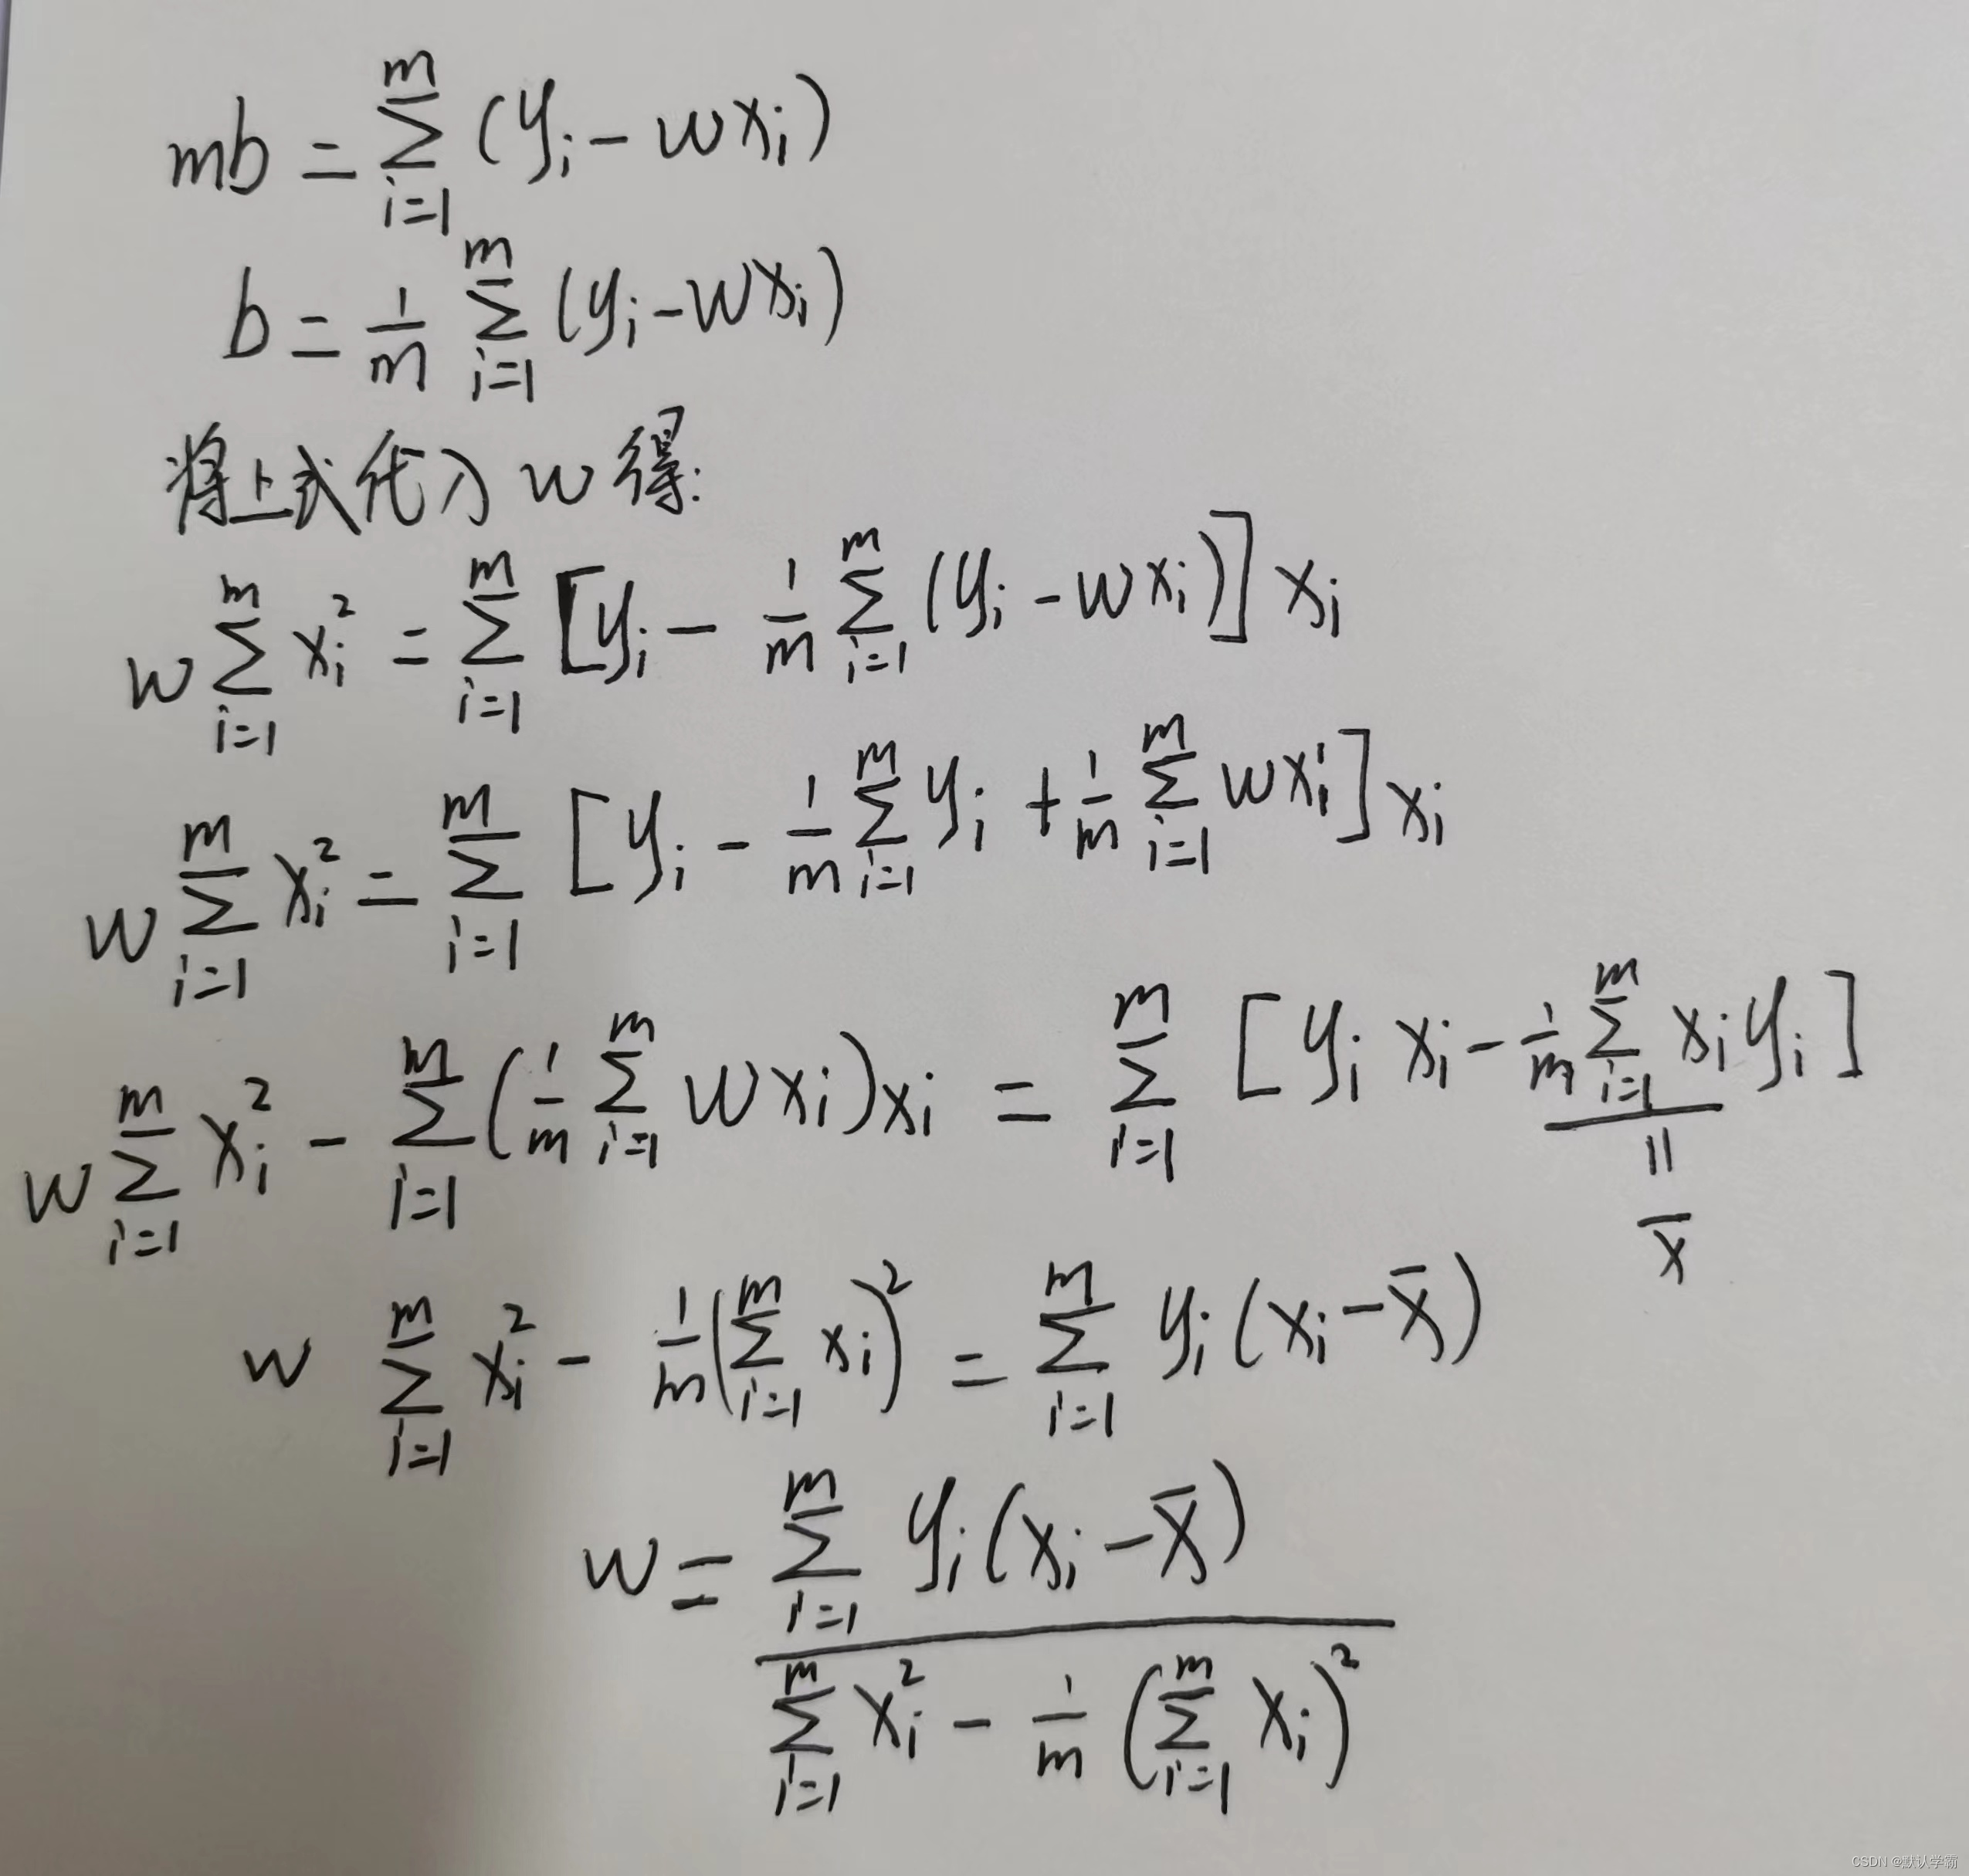 mb = \sum_{i=1}^{m} (y_i - wx_i)
b = \frac{1}{m} \sum_{i=1}^{m} (y_i - wx_i)
将上式代入 w 得:
w \sum_{i=1}^{m} x_i^2 = \sum_{i=1}^{m} [y_i - \frac{1}{m} \sum_{i=1}^{m} (y_i - wx_i)] x_i
w \sum_{i=1}^{m} x_i^2 = \sum_{i=1}^{m} [y_i - \frac{1}{m} \sum_{i=1}^{m} y_i + \frac{1}{m} \sum_{i=1}^{m} wx_i] x_i
w \sum_{i=1}^{m} x_i^2 - \sum_{i=1}^{m} (\frac{1}{m} \sum_{i=1}^{m} wx_i) x_i = \sum_{i=1}^{m} [y_i x_i - \underline{\frac{1}{m} \sum_{i=1}^{m} x_i} y_i]
=
\bar{x}
w \sum_{i=1}^{m} x_i^2 - \frac{1}{m} (\sum_{i=1}^{m} x_i)^2 = \sum_{i=1}^{m} y_i (x_i - \bar{x})
w = \frac{\sum_{i=1}^{m} y_i (x_i - \bar{x})}{\sum_{i=1}^{m} x_i^2 - \frac{1}{m} (\sum_{i=1}^{m} x_i)^2}
CSDN @默认学霸